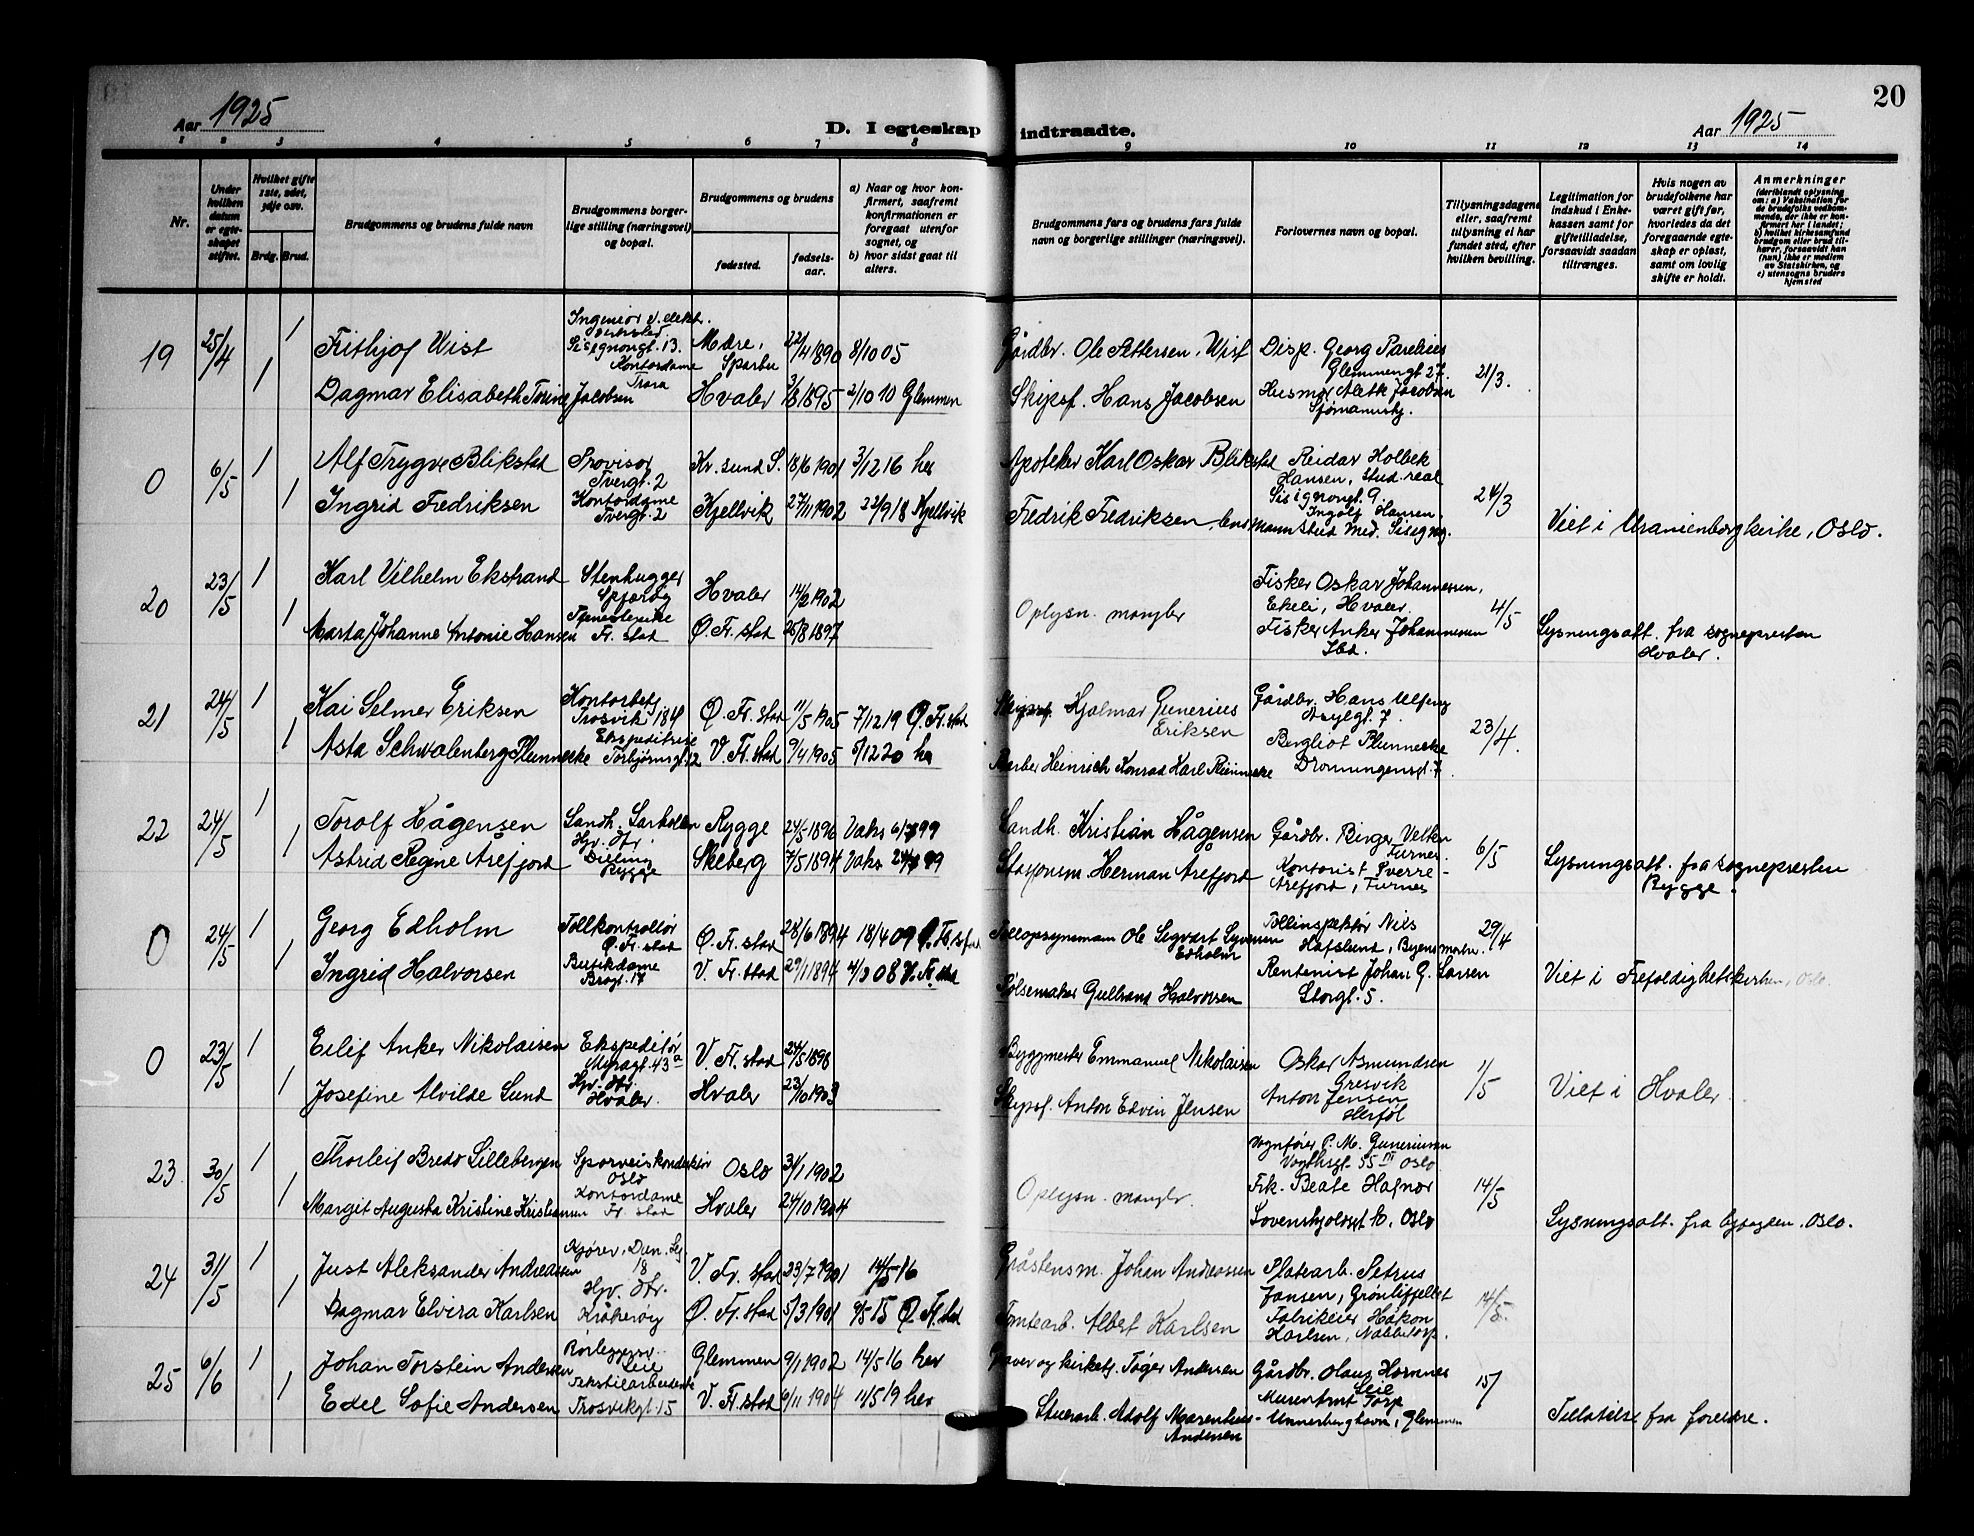 20
Aar 1925
D. I egteskap indtraadte.
Aar 1925
1 2 3 4 5 6 7 8 9 10 11 12 13 14
Nr.
Under hvilken datum er egteskapet stiftet.
Hvilket gifte 1ste, 2det, 3dje osv.
Brdg. Brud.
Brudgommens og brudens fulde navn
Brudgommens borgerlige stilling (næringsvei) og bopæl.
Brudgommens og brudens
fødested.
fødselsaar.
a) Naar og hvor konfirmert, saafremt konfirmationen er foregaat utenfor sognet, og
b) hvor sidst gaat til alters.
Brudgommens fars og brudens fars fulde navn og borgerlige stillinger (næringsvei).
Forlovernes navn og bopæl.
Tillysningsdagene eller, saafremt tillysning ei har fundet sted, efter hvilken bevilling.
Legitimation for indskud i Enkekassen samt for giftetilladelse, forsaavidt saadan tiltrænges.
Hvis nogen av brudefolkene har været gift før, hvorledes da det foregaaende egteskap er opløst, samt om lovlig skifte er holdt.
Anmerkninger
(deriblandt oplysning om: a) Vaksination for de brudefolks vedkommende, der ikke er konfirmert her i landet; b) hvilket kirkesamfund brudgom eller brud tilhører, forsaavidt han (hun) ikke er medlem av Statskirken, og c) utensogns bruders hjemsted
19 25/4 1 Frithjof Wist Ingeniør v. elektr. Sisignongt. 13. Mære, Sparbu 22/4 1890 8/10 05 Gårdbr. Ole Pettersen Wist Disp. Georg Parelius Glemmengt 27. 21/3.
1 Dagmar Elisabeth Torine Jacobsen Kontordame Trara Hvaler 3/8 1895 2/10 10 Glemmen Skipsf. Hans Jacobsen Husmor Aleth Jacobsen
0 6/5 1 Alf Trygve Blikstad Provisor Tvergt. 2 Kr. sund S. 18/6 1901 3/12 16 her Apoteker Karl Oskar Blikstad Reidar Holbek Hansen, Stud. real Sisignongt. 9. 24/3
1 Ingrid Fredriksen Kontordame Tvergt. 2 Kjellvik 27/11 1902 22/9 18 Kjellvik Fredrik Fredriksen, lensmann Ingolf Hansen stud med. Sisignog. Viet i Uranienborg kirke, Oslo.
20 23/5 1 Karl Vilhelm Ekstrand Stenhugger Spjærøy Hvaler 14/2 1902 Oplysn. mangler Fisker Oskar Johannessen, Ekeli, Hvaler. 4/5
1 Marta Johanne Antonie Hansen Tjenestepike Fr. stad Ø. Fr. stad 26/8 1897 Fisker Anker Johannessen Ibd. Lysningsatt. fra sognepresten Hvaler.
21 24/5 1 Kai Selmer Eriksen Kontorbetj Trosvik 184 Ø. Fr. stad 11/5 1905 7/12 19 Ø. Fr. stad Skipsf. Hjalmar Gunerius Eriksen Gårdbr. Hans Ulfeng Asylgt. 7. 23/4.
1 Asta Schwalenberg Plünnecke Ekspeditrise Torbjørnsgt. 12 V. Fr. stad 9/4 1905 5/12 20 her Barber Heinrich Konrad Karl Plünnecke Bergliot Plünnecke Dronningensgt. 7.
22 24/5 1 Torolf Hågensen Landh. Larkollen Rygge 24/5 1896 Vaks 6/7 99 Landh. Kristian Hågensen Gårdbr. Birger Velken Furnes. 6/5
1 Astrid Regine Årefjord Hjv. dtr. Dilling Rygge Skeberg 7/5 1894 Vaks 24/8 99 Stasjonsm. Herman Årefjord Kontorist Sverre Årefjord, Furnes Lysningsatt. fra sognepresten Rygge.
0 24/5 1 Georg Edholm Tollkontrollør Ø. Fr. stad Ø. Fr. stad 28/6 1894 18/4 09 Ø. Fr. stad Tollopsynsmann Ole Segvart Syversen Edholm Tollinspektør Nils Hafslund, Byens marker. 29/4
1 Ingrid Halvorsen Butikdame Brogt. 17 V. Fr. stad 29/1 1894 4/3 08 V. Fr. stad Pølsemaker Gulbrand Halvorsen Rentenist Johan G. Larsen Storgt. 5. Viet i Trefoldighetskirken, Oslo.
0 23/5 1 Eilif Anker Nikolaisen Ekspeditør Myragt. 43a V. Fr. stad 24/5 1898 Byggmester Emmanuel Nikolaisen Oskar Asmundsen Gresvik 1/5
1 Josefine Alvilde Lund Hjv. dtr. Hvaler. Hvaler 23/10 1903 Skipsf. Anton Edvin Jensen Anton Jensen Herføl Viet i Hvaler
23 30/5 1 Thorleif Bredo Lillebergen Sporveiskonduktør Oslo Oslo 31/1 1902 Oplysn. mangler Vognfører P. M. Guneriussen Vogtsgt. 55 III Oslo. 14/5
1 Margit Augusta Kristine Kristiansen Kontordame Fr. stad Hvaler 24/10 1904 Frk. Beate Hafnor Lovenskjoldsgt 10. Oslo Lysningsatt. fra byfogden. Oslo.
24 31/5 1 Just Aleksander Andreassen Kjørev. Dan. Lej 18 V. Fr. stad 23/7 1901 14/5 16 Gråstensm. Johan Andreassen Platearb. Petrus Jansen, Grønlifjellet 14/5.
1 Dagmar Elvira Karlsen Hjv. dtr. Kråkerøy Ø. Fr. stad 5/3 1901 9/5 15 Ø. Fr. stad Tomtearb. Albert Karlsen Fabrikeier Håkon Karlsen, Nabbetorp.
25 6/6 1 Johan Torstein Andersen Rørleggersv. Leie Glemmen 9/1 1902 14/5 16 her Graver og kirketj. Tøger Andersen Gårdbr. Olaus Hornnes Leie 15/
1 Edel Sofie Andersen Tekstilarbeiderske Trosvikgt. 15 V. Fr. stad 6/11 1904 11/5 19 her Stuerarb. Adolf Marentius Andersen Murer Arnt Torp Unnerberghavn, Glemmen Tillatelse fra foreldre.